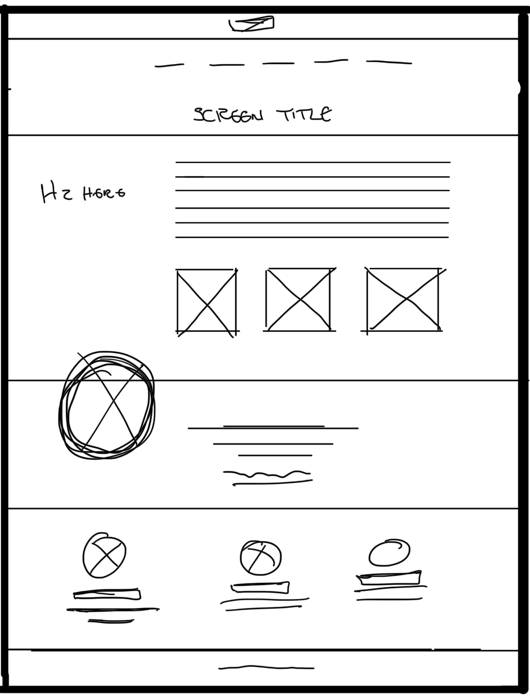 SCREEN TITLE
H2 HERE